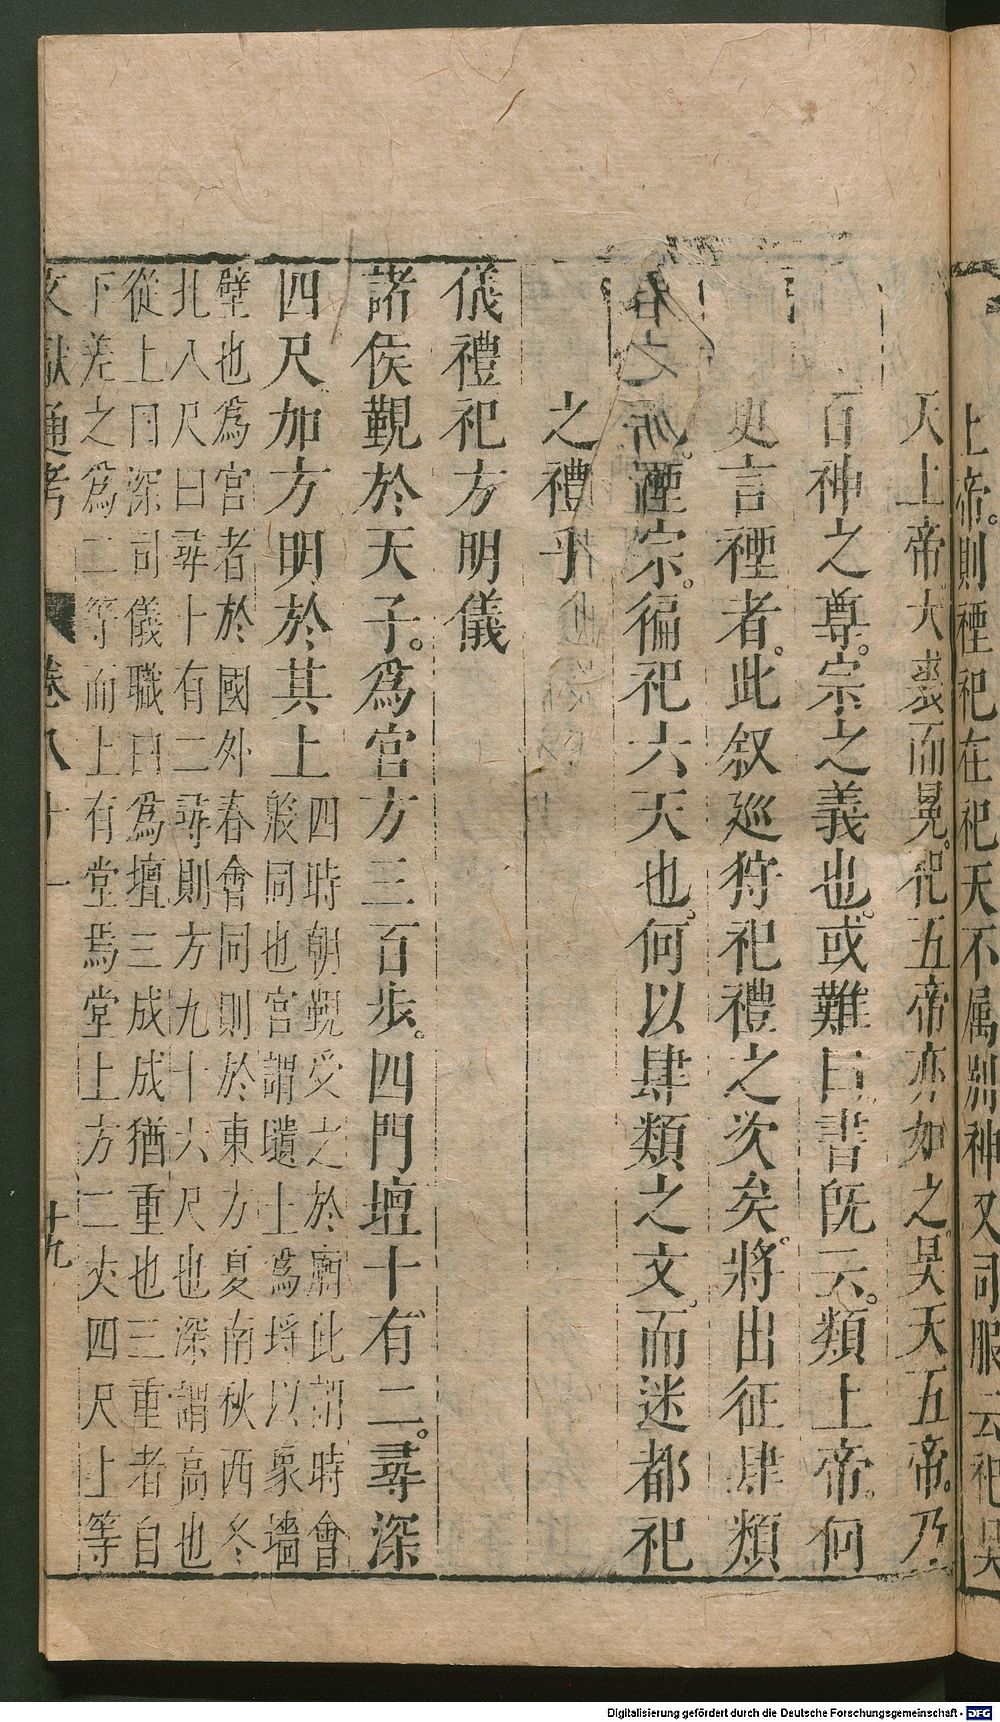 上帝則禋祀在祀天不属別神又司服云祀昊
天上帝大裘而冕祀五帝亦如之昊天五帝乃
百神之尊宗之義也或難曰書既云類上帝何
更言禋者此叙巡狩祀禮之次矣將出征肆類
禋宗徧祀六天也何以肆類之文而迷都祀
之禮乎
儀禮祀方明儀
諸侯覲於天子為宮方三百步四門壇十有二尋深
四尺加方明於其上四時朝覲受之於廟此謂時會
殷同也宮謂壝土為埒以象墻
壁也為宮者於國外春會同則於東方夏南秋西冬
北八尺曰尋十有二尋則方九十六尺也深謂高也
從上曰深司儀職曰為壇三成成猶重也三重者自
下差之為二等而上有堂焉堂上方二丈四尺上等
文獻通考 卷八十一 十九
Digitalisierung gefördert durch die Deutsche Forschungsgemeinschaft - DFG